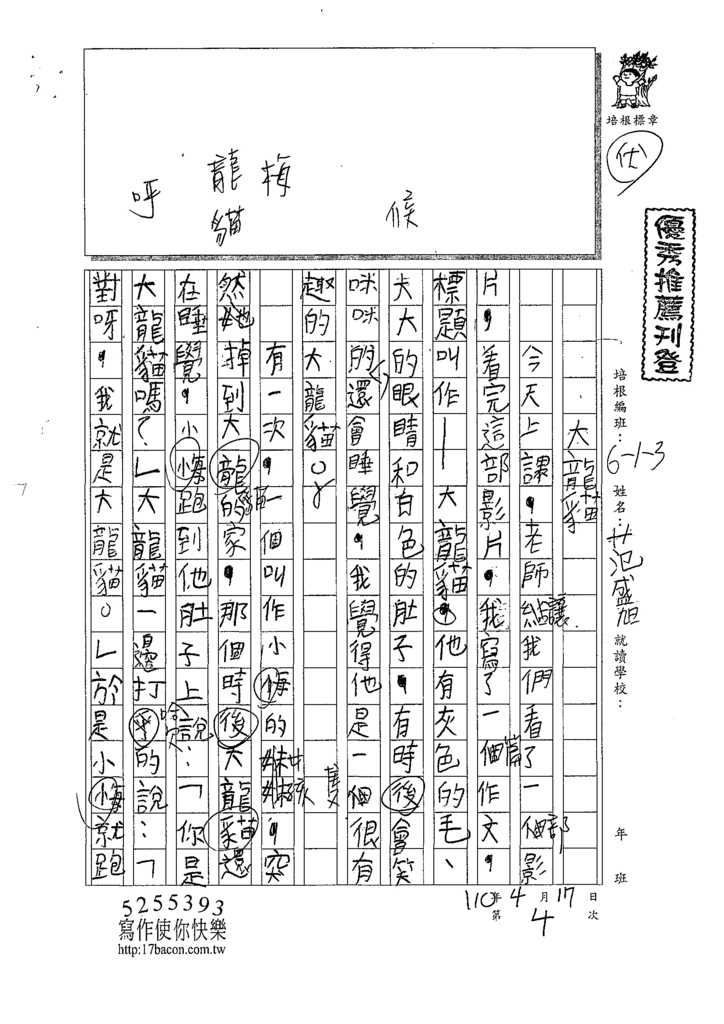 培根標章
優秀推薦刊登
培根編班：6-1-3
姓名：范盛旭
就讀學校：
年 班
候
梅
龍貓
呼
大龍貓
今天上課，老師讓我們看了一部影
片，看完這部影片，我寫了一篇作文，
標題叫作—大龍貓，他有灰色的毛、
大大的眼睛和白色的肚子，有時後會笑
咪咪的，還會睡覺，我覺得他是一隻很有
趣的大龍貓。
有一次，一個叫作小梅的女孩，突
然她掉到大龍貓的家，那個時後大龍貓還
在睡覺，小梅跑到他肚子上說：「你是
大龍貓嗎？」大龍貓一邊打哈欠的說：「
對呀，我就是大龍貓。」於是小梅就跑
110年4月17日
第4次
5255393
寫作使你快樂
http:17bacon.com.tw